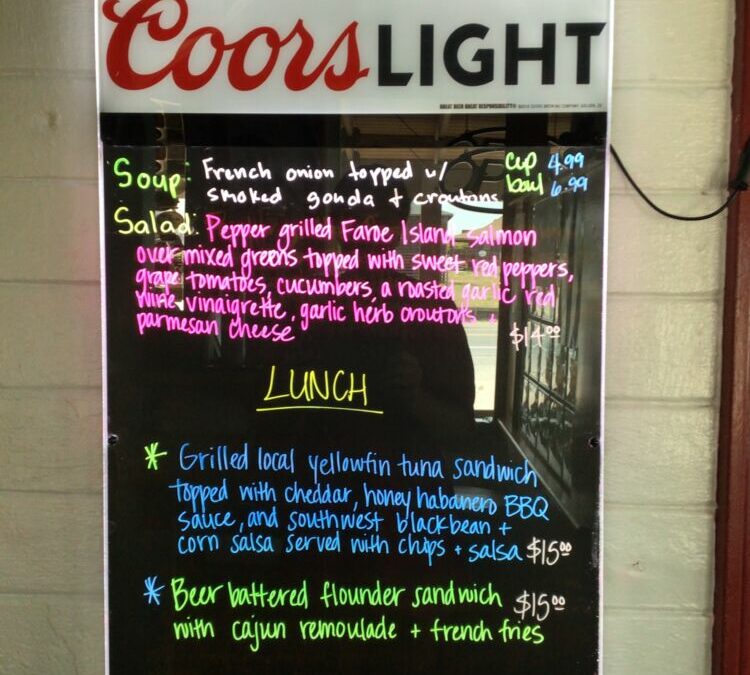 Coors LIGHT
GREAT BEER GREAT RESPONSIBILITY®
Soup: French onion topped w/ cup 4.99
smoked gouda + croutons bowl 6.99
Salad: Pepper grilled Faroe Island salmon
over mixed greens topped with sweet red peppers,
grape tomatoes, cucumbers, a roasted garlic red
wine vinaigrette, garlic herb croutons +
parmesan cheese $14.00
LUNCH
* Grilled local yellowfin tuna sandwich
topped with cheddar, honey habanero BBQ
sauce, and southwest blackbean +
corn salsa served with chips + salsa $15.00
* Beer battered flounder sandwich $15.00
with cajun remoulade + french fries